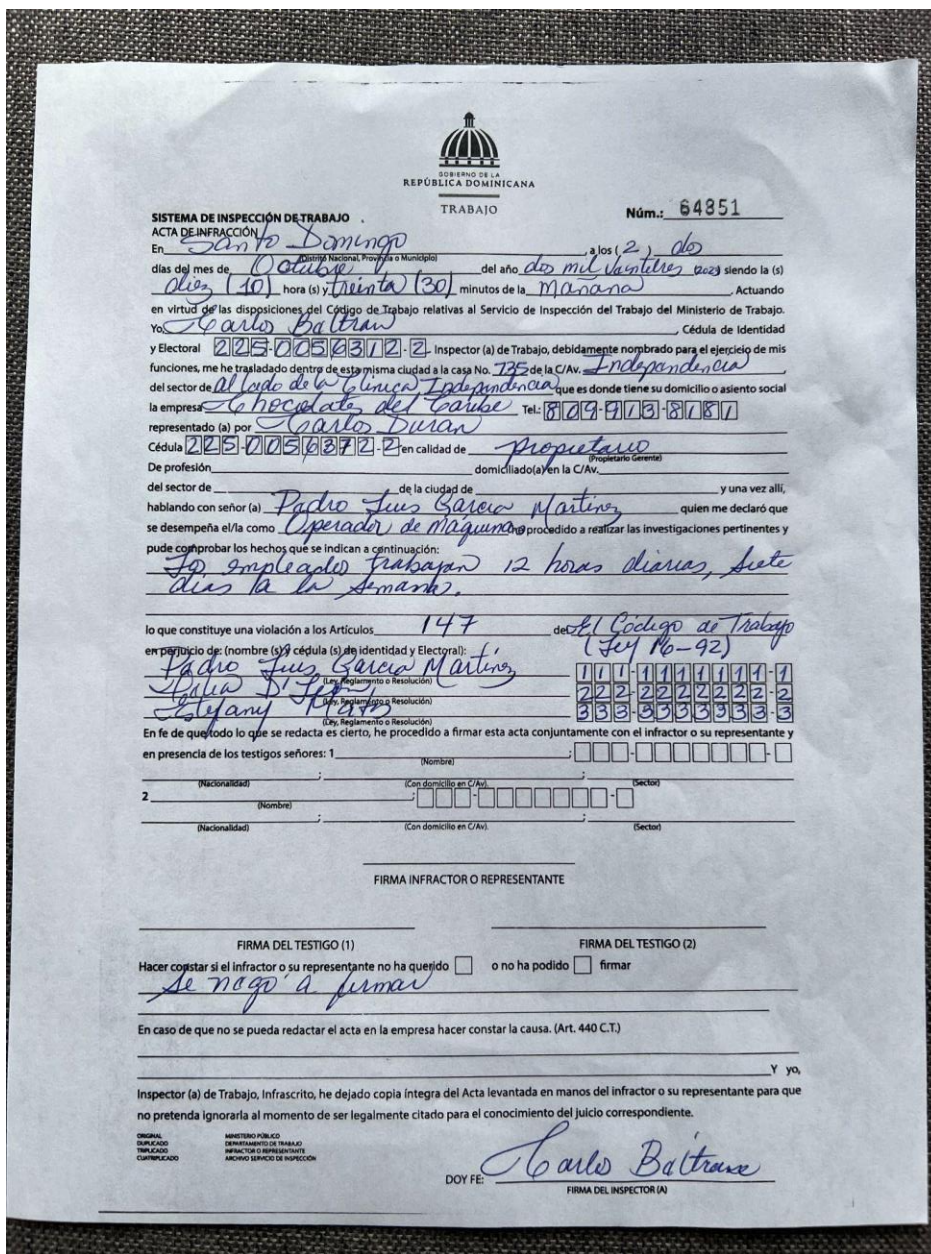 GOBIERNO DE LA
REPÚBLICA DOMINICANA
TRABAJO
Núm.: 64351
SISTEMA DE INSPECCIÓN DE TRABAJO
ACTA DE INFRACCIÓN
En Santo Domingo, a los (2) dos
(Distrito Nacional, Provincia o Municipio)
días del mes de Octubre del año dos mil veintitres (2023) siendo la (s)
diez (10) hora (s) y treinta (30) minutos de la Mañana. Actuando
en virtud de las disposiciones del Código de Trabajo relativas al Servicio de Inspección del Trabajo del Ministerio de Trabajo.
Yo, Carlos Baltran, Cédula de Identidad
y Electoral 225-0056312-2. Inspector (a) de Trabajo, debidamente nombrado para el ejercicio de mis
funciones, me he trasladado dentro de esta misma ciudad a la casa No. 735 de la C/Av. Independencia
del sector de al lado de la Clinica Independencia que es donde tiene su domicilio o asiento social
la empresa Chocolates del Caribe Tel.: 809-913-8181
representado (a) por Carlos Duran
Cédula 225-0056372-2 en calidad de propietario
(Propietario Gerente)
De profesión domiciliado(a) en la C/Av.
del sector de de la ciudad de y una vez allí,
hablando con señor (a) Padro Luis Garcia Martinez quien me declaró que
se desempeña el/la como Operador de maquinas procedido a realizar las investigaciones pertinentes y
pude comprobar los hechos que se indican a continuación:
Los empleados trabajan 12 horas diarias, siete
dias la semana.
lo que constituye una violación a los Artículos 147 del El Código de Trabajo
(Ley 16-92)
en perjuicio de: (nombre (s) y cédula (s) de identidad y Electoral):
Padro Luis Garcia Martinez 111-1111111-1
(Ley, Reglamento o Resolución)
D' León 222-2222222-2
(Ley, Reglamento o Resolución)
Estefany 333-3333333-3
(Ley, Reglamento o Resolución)
En fe de que todo lo que se redacta es cierto, he procedido a firmar esta acta conjuntamente con el infractor o su representante y
en presencia de los testigos señores: 1 ;
(Nombre)
(Nacionalidad) ; (Con domicilio en C/Av). ; (Sector)
2 ;
(Nombre)
(Nacionalidad) ; (Con domicilio en C/Av). ; (Sector)
FIRMA INFRACTOR O REPRESENTANTE
FIRMA DEL TESTIGO (1) FIRMA DEL TESTIGO (2)
Hacer constar si el infractor o su representante no ha querido o no ha podido firmar
Se negó a firmar
En caso de que no se pueda redactar el acta en la empresa hacer constar la causa. (Art. 440 C.T.)
Y yo,
Inspector (a) de Trabajo, Infrascrito, he dejado copia íntegra del Acta levantada en manos del infractor o su representante para que
no pretenda ignorarla al momento de ser legalmente citado para el conocimiento del juicio correspondiente.
ORIGINAL MINISTERIO PÚBLICO
DUPLICADO DEPARTAMENTO DE TRABAJO
TRIPLICADO INFRACTOR O REPRESENTANTE
CUATRIPLICADO ARCHIVO SERVICIO DE INSPECCIÓN
DOY FE: Carlo Baltrane
FIRMA DEL INSPECTOR (A)